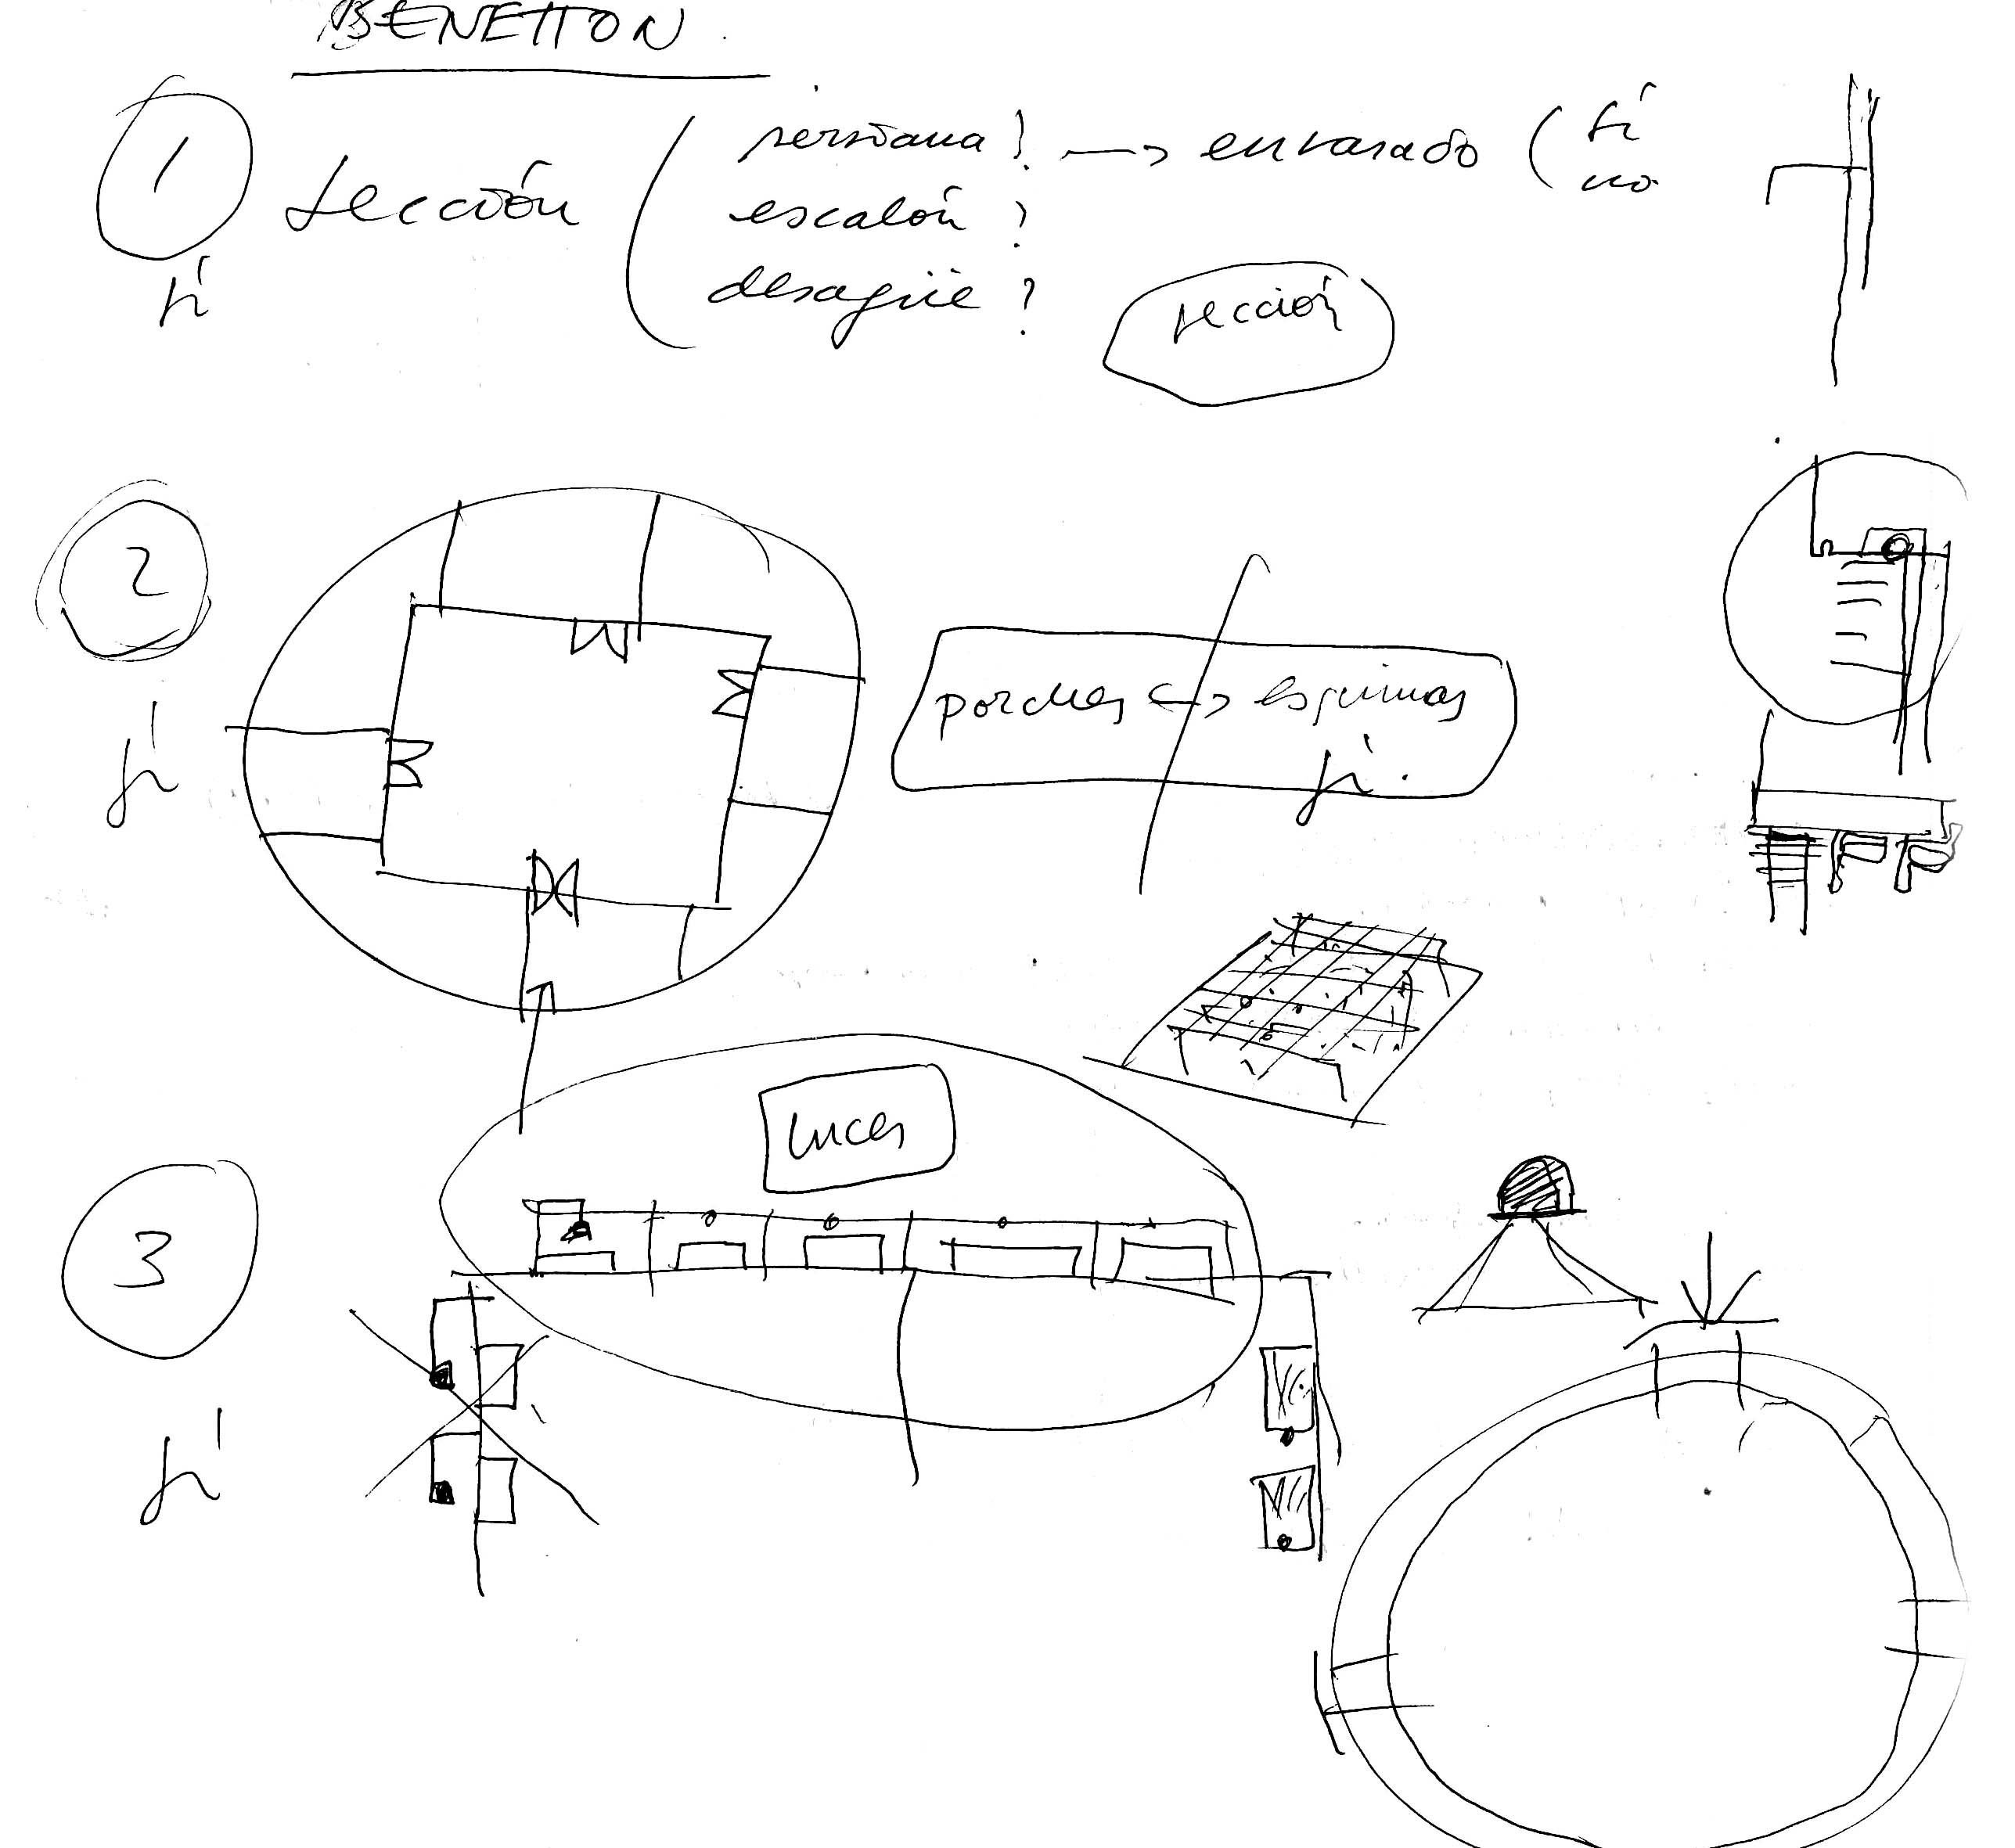 BENETTON.
1 sección ( persiana? → enrasado ( sí
no.
escalón?
desagüe?
sección
sí
2
porches ↔ esquinas
sí.
sí
luces
3
sí